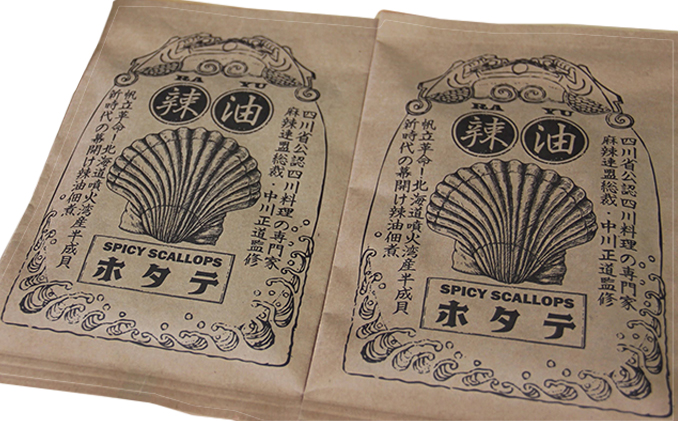 RA YU
辣油
四川省公認四川料理の専門家
麻辣連盟総裁・中川正道監修
帆立革命!北海道噴火湾産半成貝
新時代の幕開け辣油佃煮
SPICY SCALLOPS
ホタテ
RA YU
辣油
四川省公認四川料理の専門家
麻辣連盟総裁・中川正道監修
帆立革命!北海道噴火湾産半成貝
新時代の幕開け辣油佃煮
SPICY SCALLOPS
ホタテ